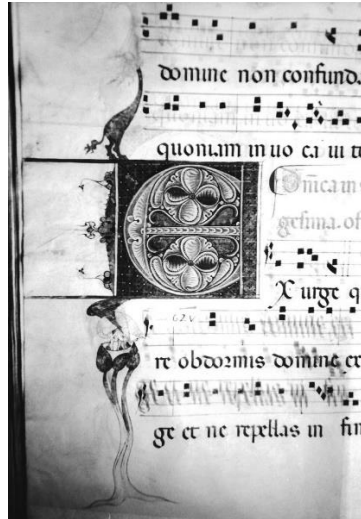 domine non confund.
quoniam inuo ca ui te
Dnica in
gesima. of
E
X urge q
62v
re obdormis domine ex
ge et ne repellas in fin